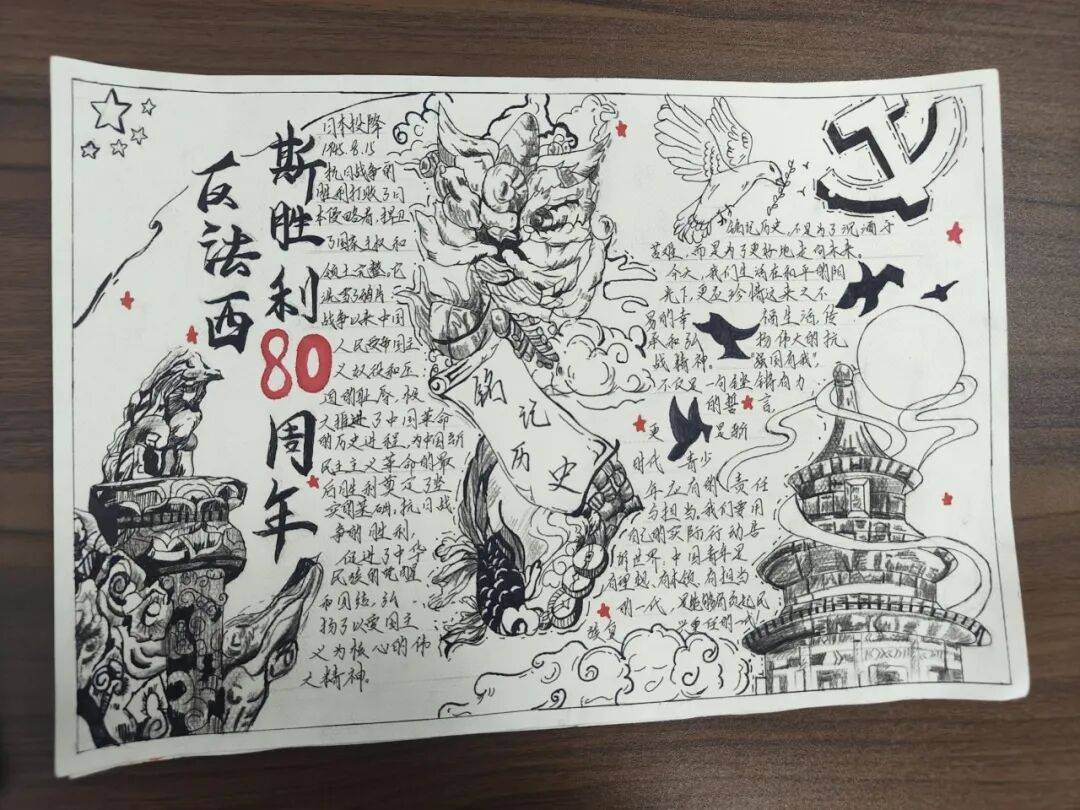 反法西
斯胜利80周年
日本投降
1945.8.15
抗日战争的
胜利打败了日
本侵略者,捍卫
了国家主权和
领土完整。它
洗雪了鸦片
战争以来中国
人民受帝国主
义奴役和压
迫的耻辱,极
大推进了中国革命
的历史进程,为中国新
民主主义革命的最
后胜利奠定了坚
实的基础,抗日战
争的胜利,
促进了中华
民族的觉醒
和团结,弘
扬了以爱国主
义为核心的伟
大精神。
铭记
历史
铭记历史,不是为了沉湎于
苦难,而是为了更好地走向未来。
今天,我们生活在和平的阳
光下,更应珍惜这来之不
易的幸 福生活,传
承和弘 扬伟大的抗
战精神。 "强国有我",
不仅是一句铿锵有力
的誓言,
更 是新
时代 青少
年应有的责任
与担当,我们要用
自己的实际行动告
诉世界:中国青年是
有理想、有本领、有担当
的一代, 是能够肩负起民
族复 兴重任的一代